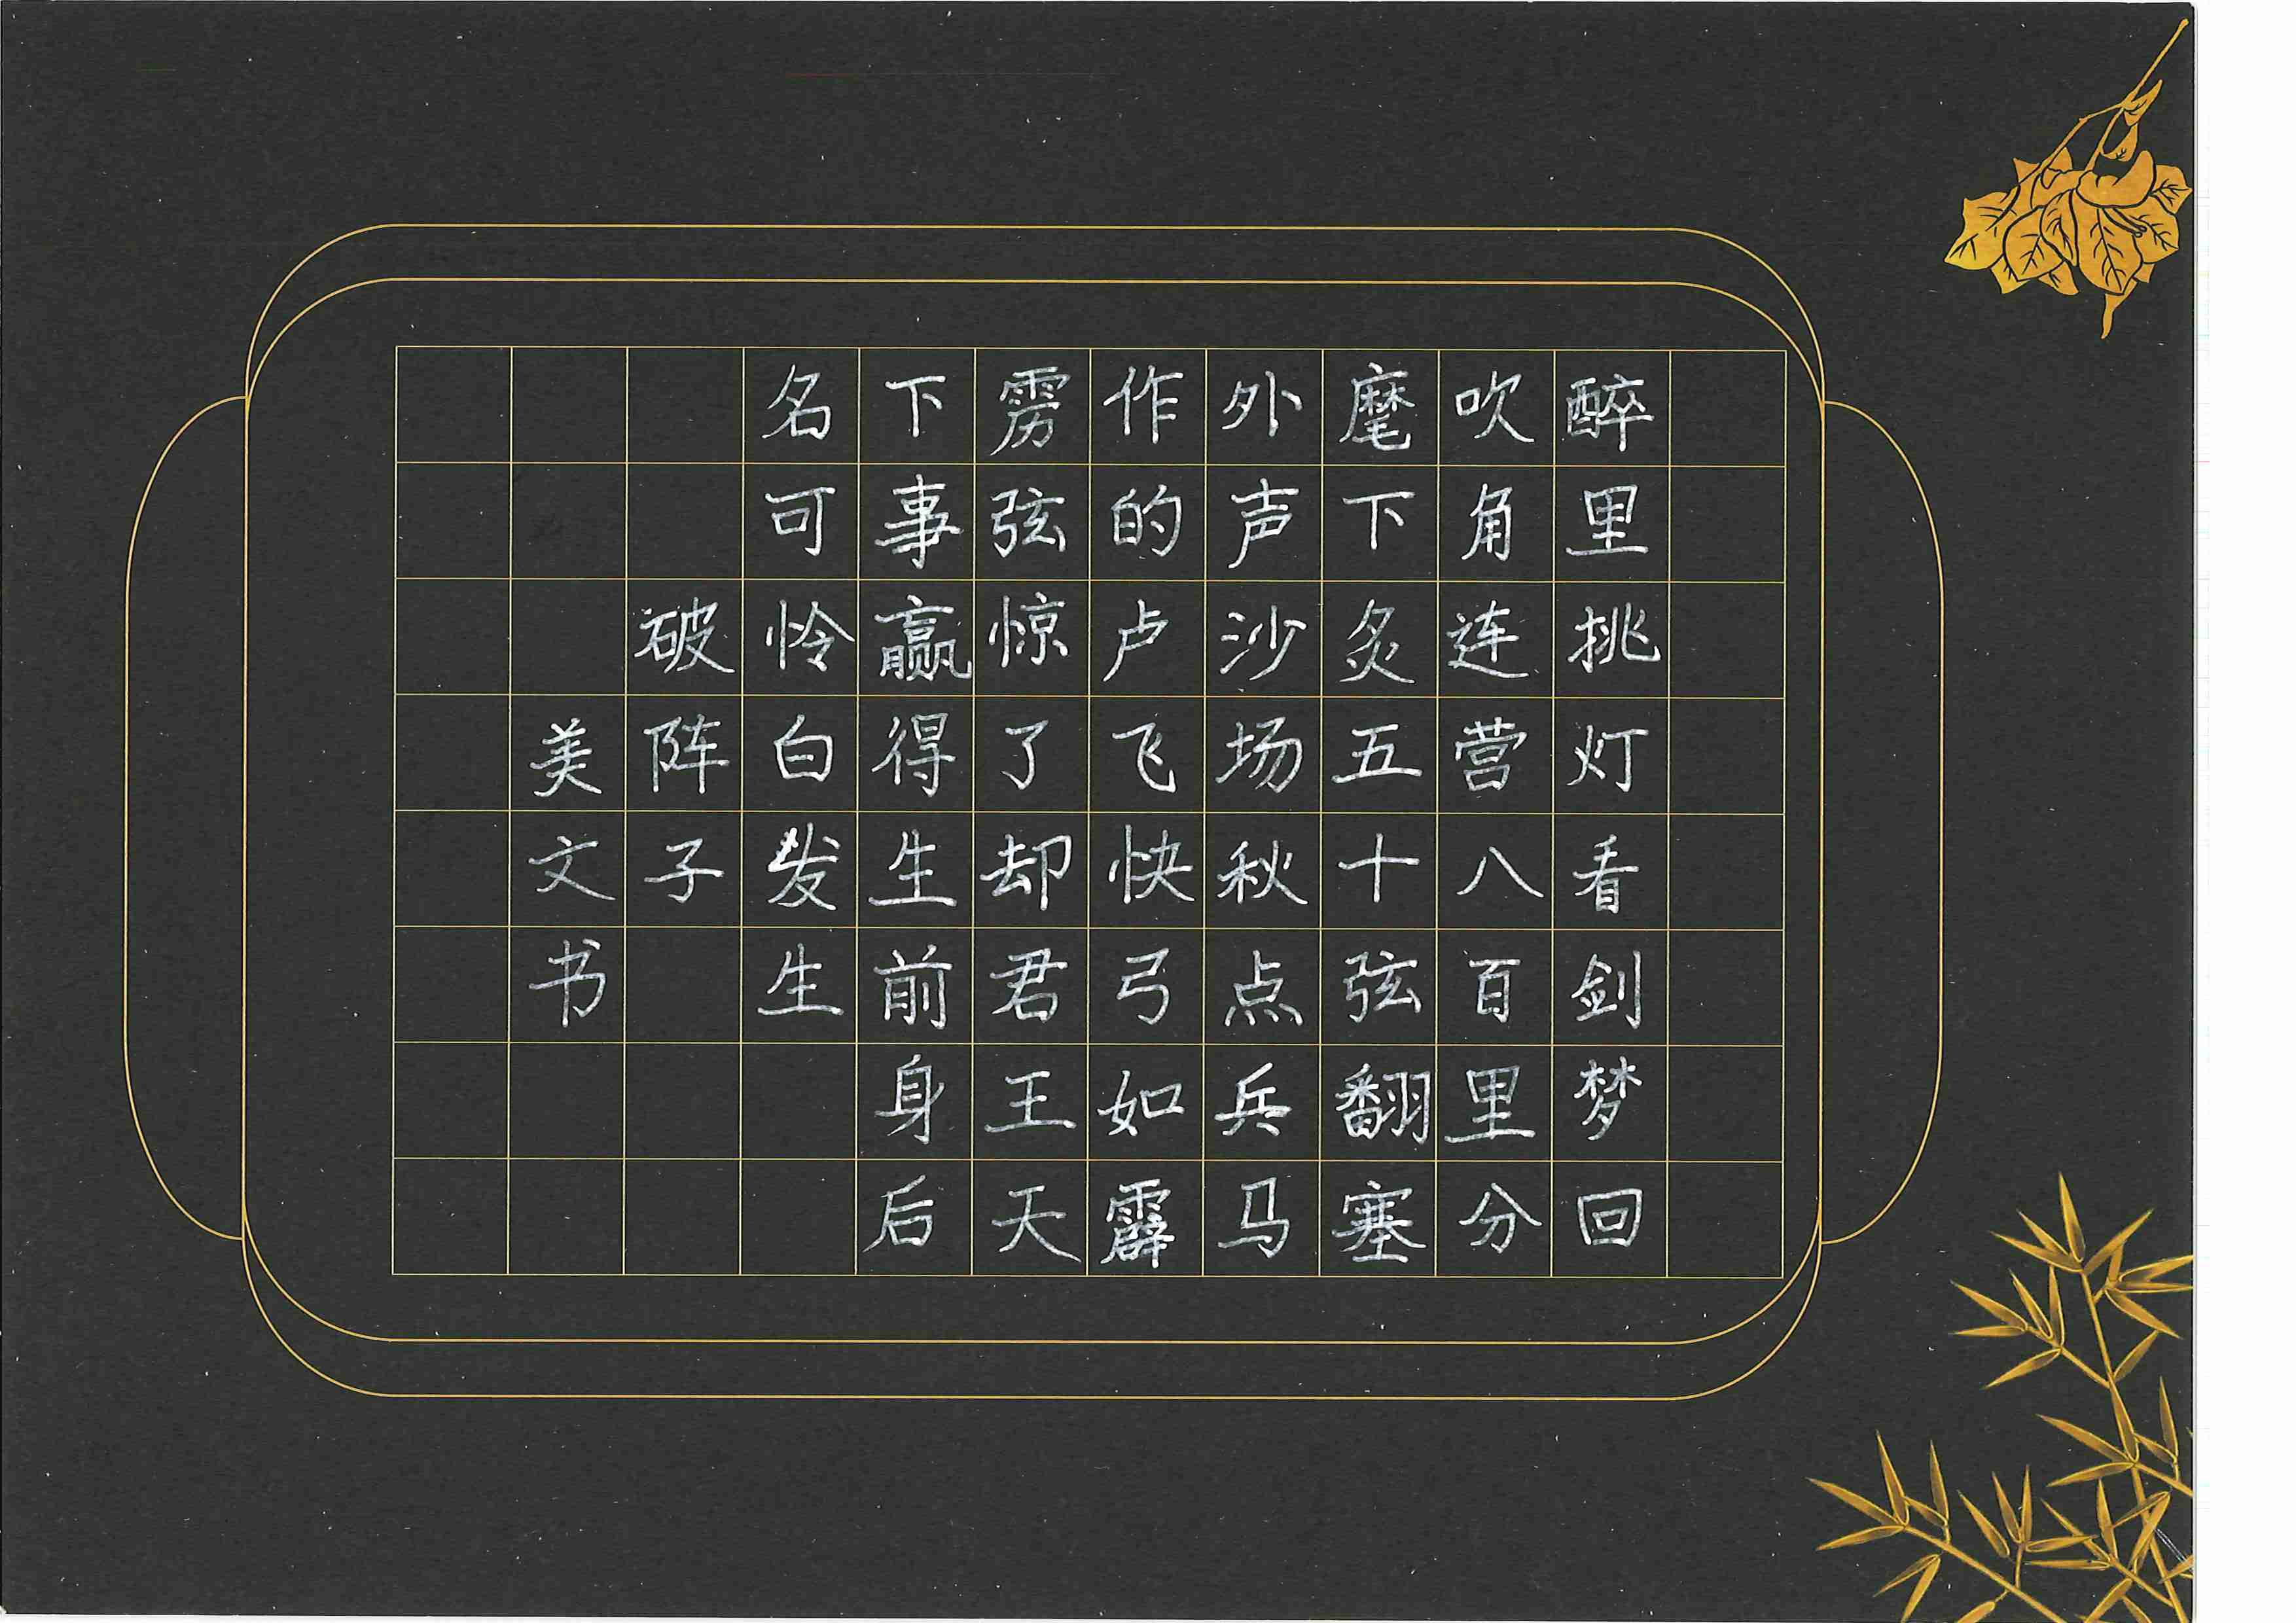 醉里挑灯看剑梦回
吹角连营八百里分
麾下炙五十弦翻塞
外声沙场秋点兵马
作的卢飞快弓如霹
雳弦惊了却君王天
下事赢得生前身后
名可怜白发生
破阵子
美文书